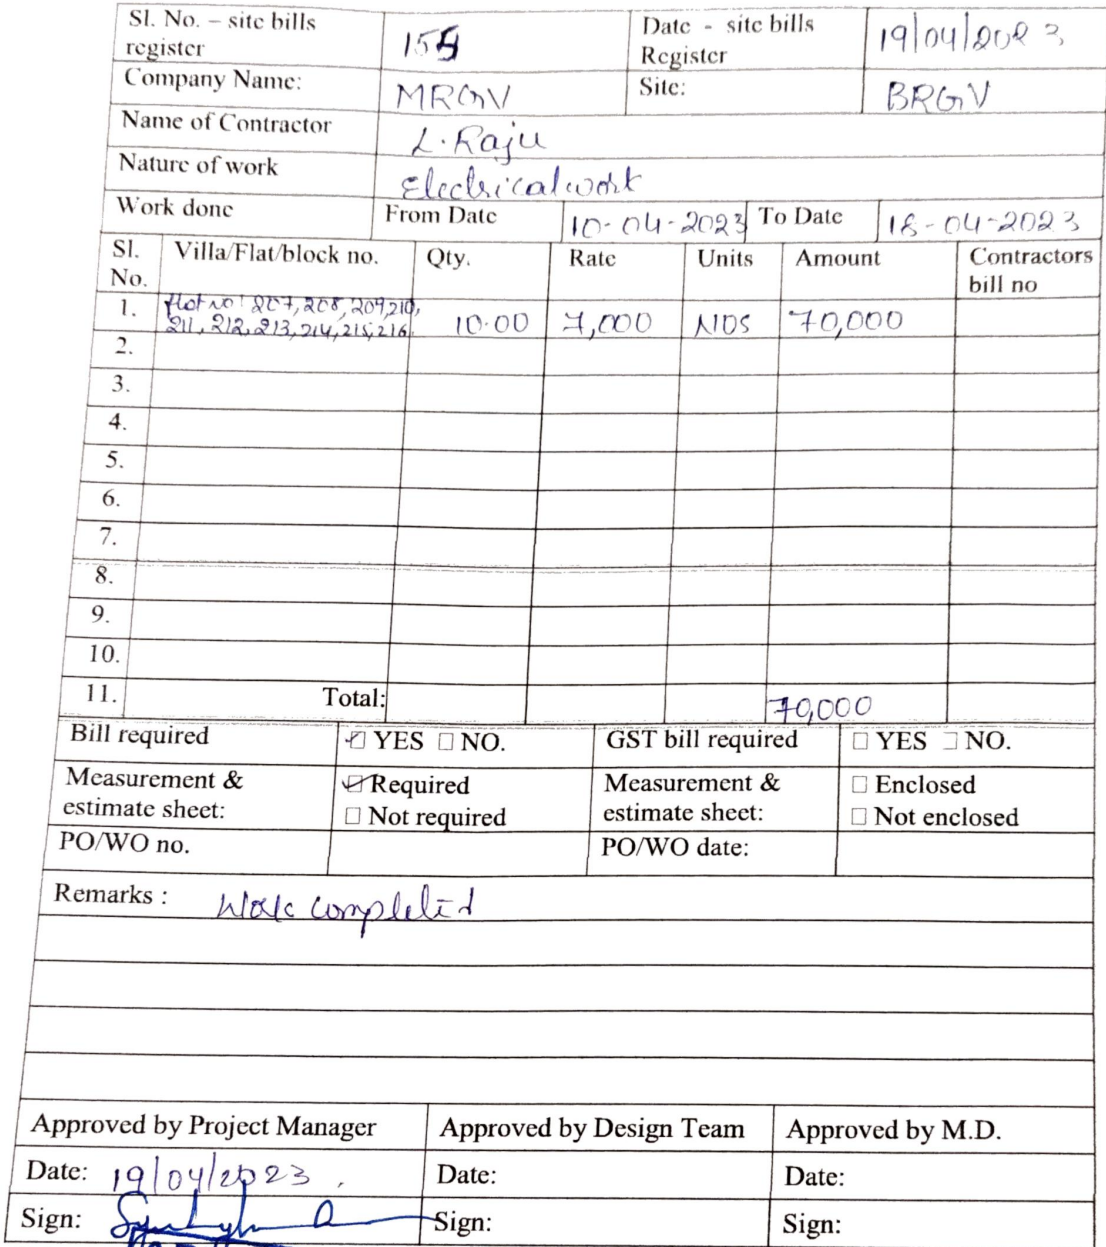 Sl. No. – site bills Date - site bills 19/04/2023
register Register
Company Name: MRGV Site: BRGV
Name of Contractor L. Raju
Nature of work Electrical work
Work done From Date 10-04-2023 To Date 18-04-2023
Sl. Villa/Flat/block no. Qty. Rate Units Amount Contractors
No. bill no
1. flat no: 207, 208, 209, 210,
211, 212, 213, 214, 215, 216 10.00 7,000 NOS 70,000
2.
3.
4.
5.
6.
7.
8.
9.
10.
11. Total: 70,000
Bill required ☑ YES □ NO. GST bill required □ YES □ NO.
Measurement & ☑ Required Measurement & □ Enclosed
estimate sheet: □ Not required estimate sheet: □ Not enclosed
PO/WO no. PO/WO date:
Remarks : Work completed
Approved by Project Manager Approved by Design Team Approved by M.D.
Date: 19/04/2023 Date: Date:
Sign: Sign: Sign: